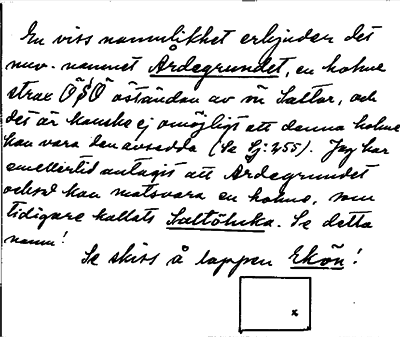 En viss namnlikhet erbjuder det
nuv. namnet Årdegrundet, en holme
strax OSO östandan av ön Saltor, och
det är kanske ej omöjligt att denna holme
kan vara den avsedda (Se Sj: 255). Jag har
emellertid antagit att Årdegrundet
också kan motsvara en holme, som
tidigare kallats Saltöluka. Se detta
namn!
Se skiss å lappen Ekön!
x